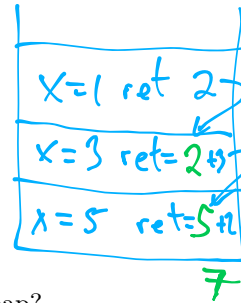 x=1 ret 2
x=3 ret=2+3
x=5 ret=5+2
7